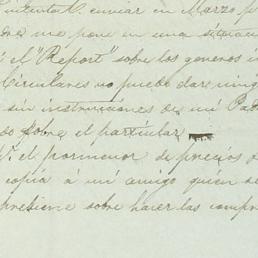 intenta V. enviar en Marzo p
me pone en una situación
el "Report" sobre los generos i
Circulares no puede dar ning
sin instrucciones de mi Pad
do sobre el particular
V. el pormenor de precios d
copia á mi amigo quien se
presione sobre hacer las compr